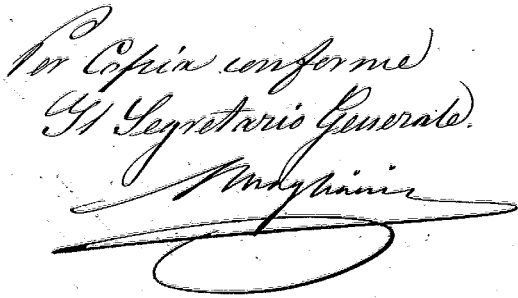 Per Copia conforme
Il Segretario Generale.
Magliani